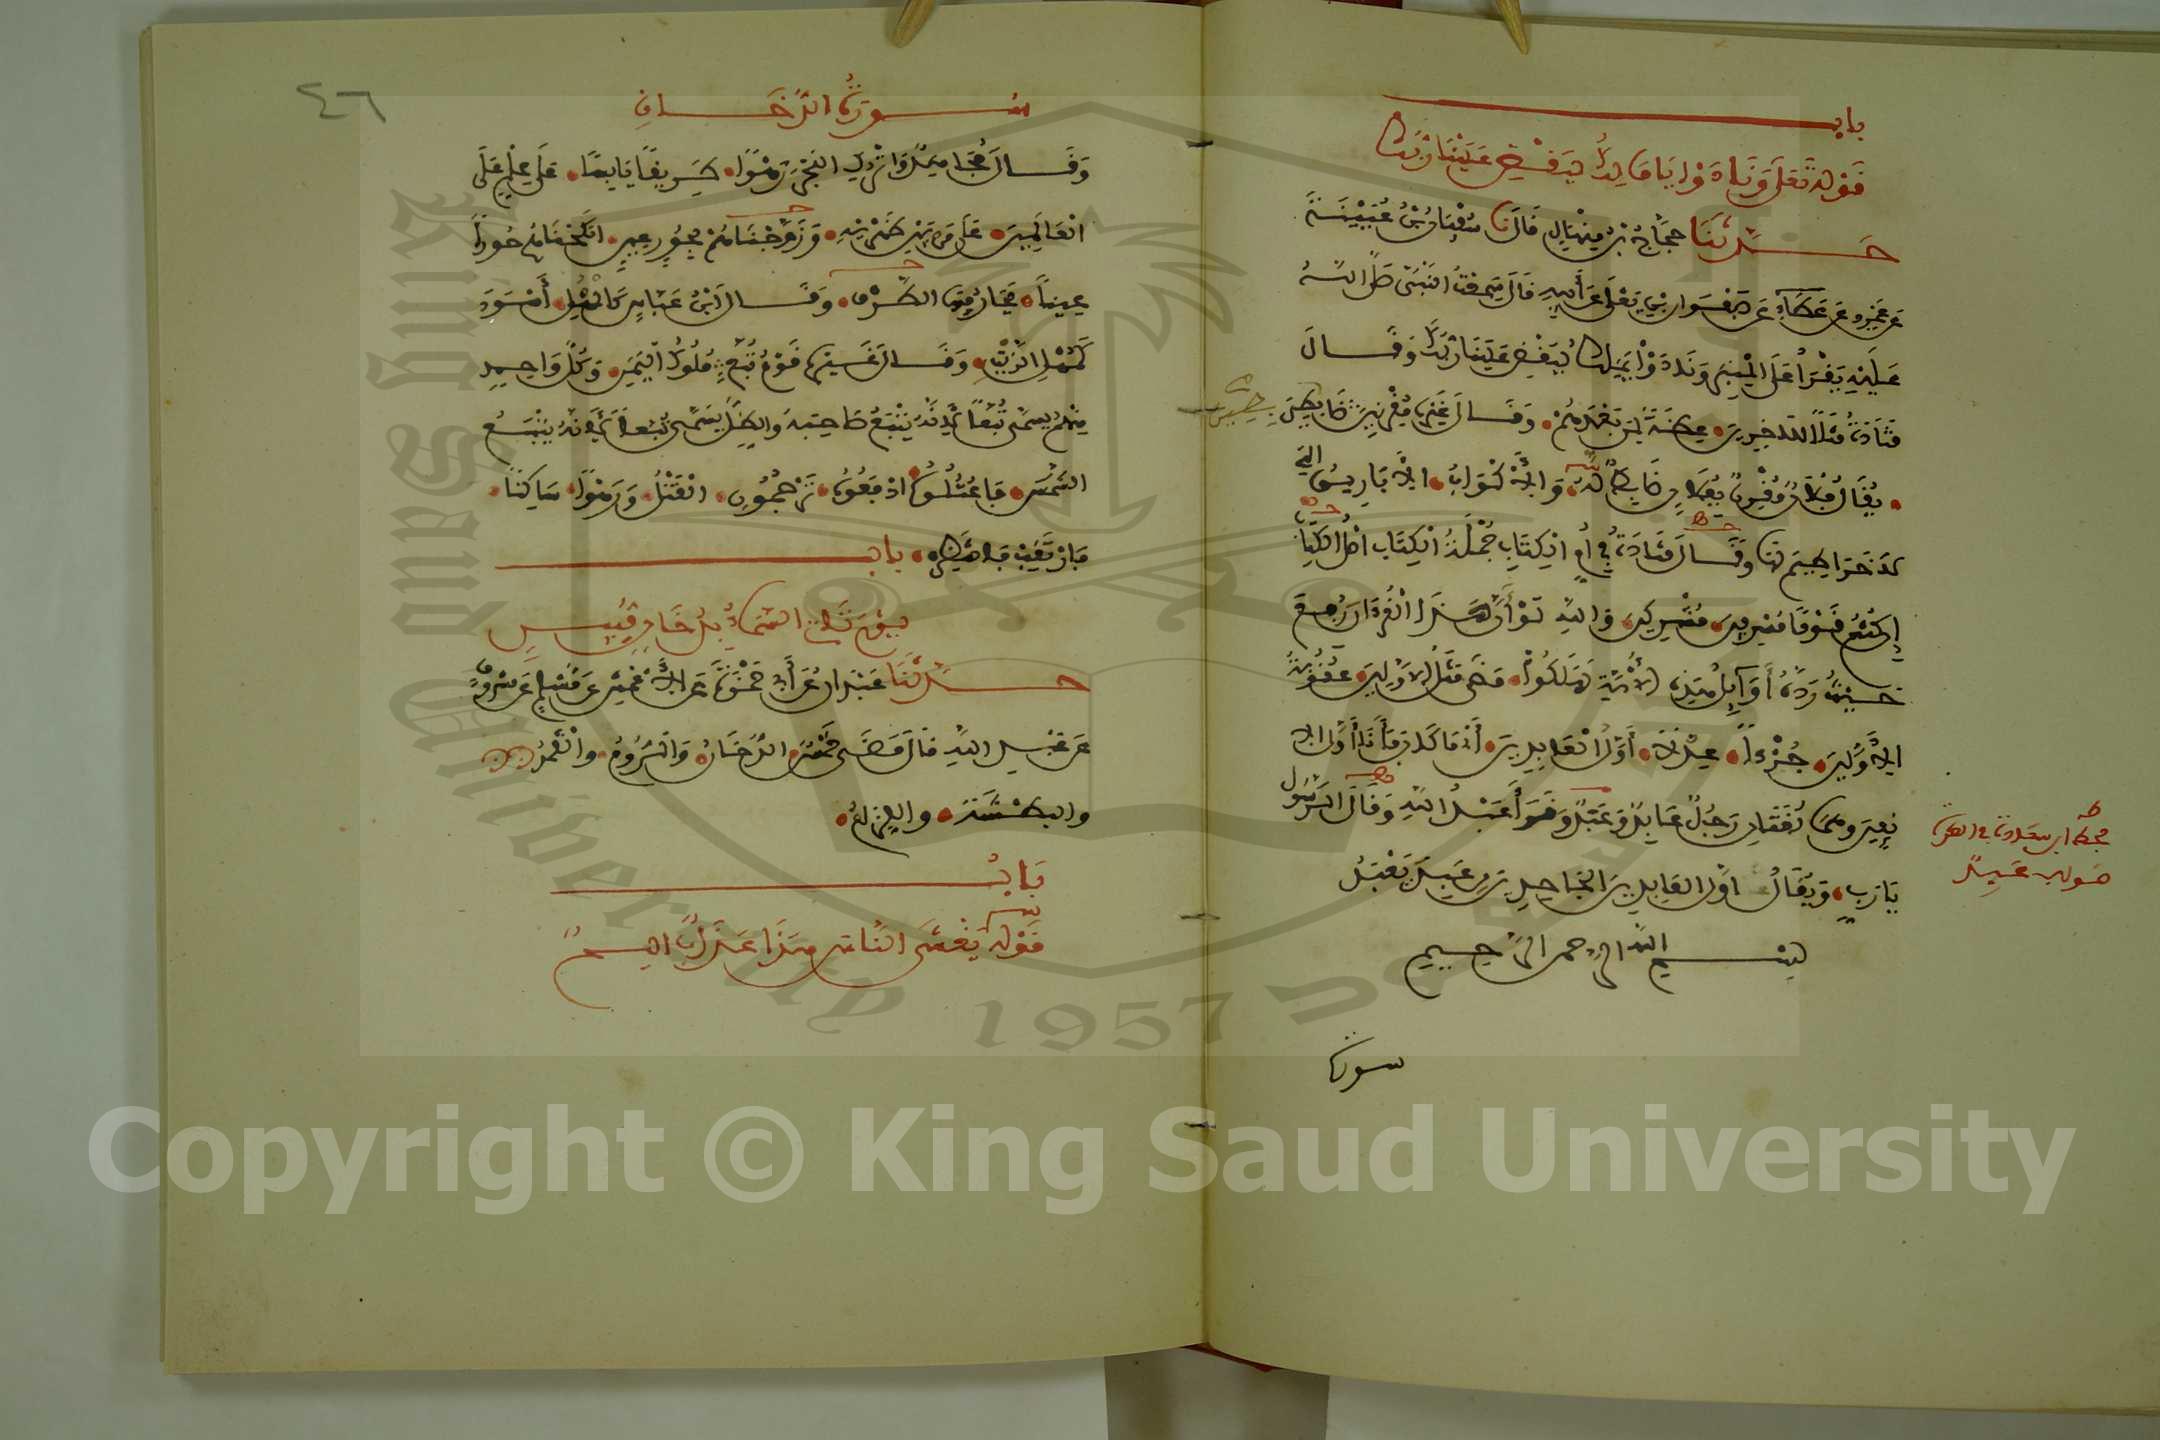 باب
قوله تعلى ونادوا يا مالك ليقض علينا ربك
حدثنا حجاج بن منهال قال نا سفيان بن عيينة
عن عمرو عن عطاء عن صفوان بن يعلى عن أبيه قال سمعت النبي صلى الله
عليه يقرأ على المنبر ونادوا يا مالك ليقض علينا ربك وقال
قتادة مثلا للاخرين عظة لمن بعدهم وقال غيره مقرنين ضابطين
يقال فلان مقرن لفلان ضابط له والأكواب الأباريق التي
لا خراطيم لها وقال قتادة في أم الكتاب جملة الكتاب أصل الكتاب
إن كنتم قوما مسرفين مشركين والله لو أن هذا القرءان رفع
حيث رده أوائل هذه الأمة لهلكوا ومضى مثل الاولين عقوبة
الأولين جزءا عدلا أول العابدين أي ما كان فأنا أول الا
نفين وهما لغتان رجل عابد وعبد وقرأ عبد الله وقال الرسول
يا رب ويقال أول العابدين الجاحدين من عبد يعبد
بسم الله الرحمن الرحيم
سورة
٤٦
سورة الدخان
وقال مجاهد واترك البحر رهوا طريقا يابسا على علم على
العالمين على من بين ظهريه وزوجناهم بحور عين انكحناهم حورا
عينا يحار فيها الطرف وقال ابن عباس كالمهل أسود
كمهل الزيت وقال غيره قوم تبع ملوك اليمن وكل واحد
منهم يسمى تبعا لأنه يتبع صاحبه والظل يسمى تبعا لأنه يتبع
الشمس فاعتلوه ادفعوه ترجمون القتل ورهوا ساكنا
فارتقب فانتظر باب
يوم تاتي السماء بدخان مبين
حدثنا عبدان عن أبي حمزة عن الأعمش عن مسلم عن مسروق
عن عبد الله قال مضى خمس الدخان والروم والقمر
والبطشة واللزام
باب
قوله يغشى الناس هذا عذاب اليم
King Saud University
1957
Copyright © King Saud University